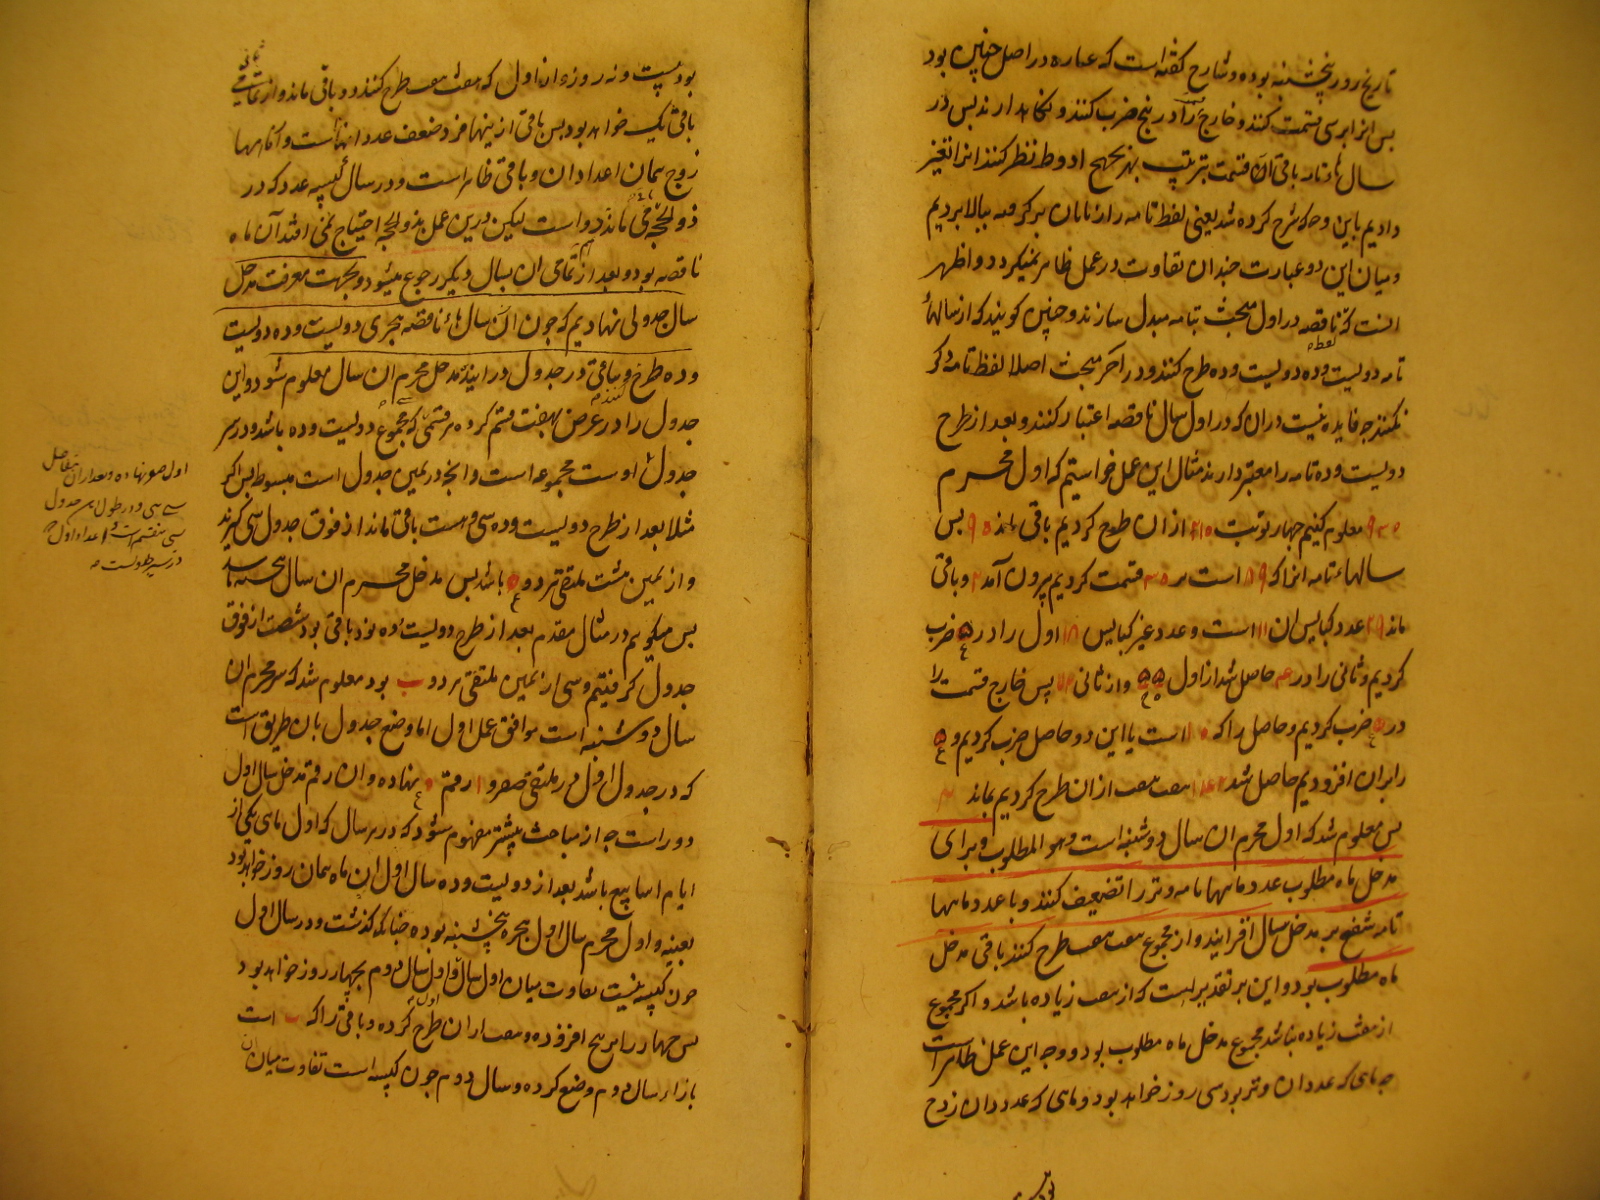 تاریخ روز پنجشنبه بوده و شارح گفته است که عباره در اصل چنین بود
پس انرا بر سی قسمت کنند و خارج را در پنج ضرب کنند و نکاه دارند پس در
سالهاء تامه باقی ان قسمت بترتیب بهزیجهج ادوط نظر کنند انرا تغیر
دادیم باین وجه که شرح کرده شد یعنی لفظ تامه را از پایان بر گرفته ببالا بردیم
و میان این دو عبارت چندان تفاوت در عمل ظاهر نمیکردد و اظهر
انست که ناقصه در اول مبحث بتامه مبدل سازند و چنین کویند که از سالهاء
تامه دویست و ده دویست و ده طرح کنند و در اخر مبحث اصلا لفظ تامه ذکر
نکنند چه فایده نیست در ان که در اول سال ناقصه اعتبار کنند و بعد از طرح
دویست و ده تامه را معتبر دارند مثال این عمل خواستیم که اول محرم
معلوم کنیم چهار نوبت ۲۱۰ از ان طرح کردیم باقی ماند ۹۰ پس
سالهاء تامه انرا که ۸۹ است بر ۳۰ قسمت کردیم بیرون آمد ۲ و باقی
ماند ۲۹ عدد کبایس ان ۱۱ است و عدد غیر کبایس ۱۸ اول را در ۵ ضرب
کردیم و ثانی را در ۴ حاصل شد از اول ۵۵ و از ثانی ۷۲ پس خارج قسمت را
در ۵ ضرب کردیم و حاصل را که ۱۰ است با این دو حاصل ضرب کردیم و ۵
را بران افزودیم حاصل شد ۱۴۲ هفت هفت از ان طرح کردیم بماند ۲
پس معلوم شد که اول محرم ان سال دوشنبه است و هو المطلوب و برای
مدخل ماه مطلوب عدد ماهها تامه وتر را تضعیف کنند و با عدد ماهها
تامه شفع بر مدخل سال افزایند و از مجموع هفت هفت طرح کنند باقی مدخل
ماه مطلوب بود و این بر تقدیریست که از هفت زیاده باشد و اکر مجموع
از هفت زیاده نباشد مجموع مدخل ماه مطلوب بود و وجه این عمل ظاهر است
چه ماهی که عدد ان وتر بود سی روز خواهد بود و ماهی که عدد ان زوج
بود بیست و نه روز و از اول که هفت هفت طرح کنند دو باقی ماند و از ثانی
باقی یک خواهد بود پس باقی از اینها فرد ضعف عدد انهاست و آنانها
زوج بهمان اعداد ان و باقی ظاهر است و در سال کبیسه عدد که در
ذو الحجه باقی ماند دو است لیکن درین عمل بذو الحجه احتیاج نمی افتد آن ماه
ناقصه بود و بعد از تمامی ان بسال دیکر رجوع میشود و بجهت معرفت مدخل
سال جدولی نهادیم که چون ان سال هاء ناقصه هجری دویست و ده دویست
و ده طرح و باقی در جدول درایند مدخل محرم ان سال معلوم شود و این
جدول را در عرض بهفت قسم کرده هر قسمی که مجموع دویست و ده باشد و در سر
جدول اوست مجموعه است و انچه در یمین جدول است مبسوط پس اکر
مثلا بعد از طرح دویست و ده سی و هست باقی ماند از فوق جدول سی کیرند
و از یمین هشت ملتقی هر دو ۵ باشد پس مدخل محرم ان سال پنجشنبه باشد
پس میکویم در مثال مقدم بعد از طرح دویست و ده نود باقی بود شصت از فوق
جدول کرفتیم و سی از یمین ملتقی هر دو ب بود معلوم شد که سر محرم ان
سال دوشنبه است موافق عمل اول اما وضع جدول بان طریق است
که در جدول اول در ملتقی صفر و ۱ رقم ۵ نهاده و ان رقم مدخل سال اول
دور است چه از مباحث پیشتر مفهوم شود که در هر سال که اول ماهی یکی از
ایام اسابیع باشد بعد از دویست و ده سال اول ان ماه همان روز خواهد بود
بعینه و اول محرم سال اول هجره پنجشنبه بوده چنانکه کذشت و در سال اول
چون کبیسه نیست تفاوت میان اول سال و اول سال دوم بچهار روز خواهد بود
پس چهار را بر پنج افزوده و هفت از ان طرح کرده و باقی را که ب است
بازاء سال دوم وضع کرده و سال دوم چون کبیسه است تفاوت میان
اول صفر نهاده و بعد از ان بتفاضل
سی سی و در طول این جدول
بسی منقسم است و اعداد اول
در سر طولست